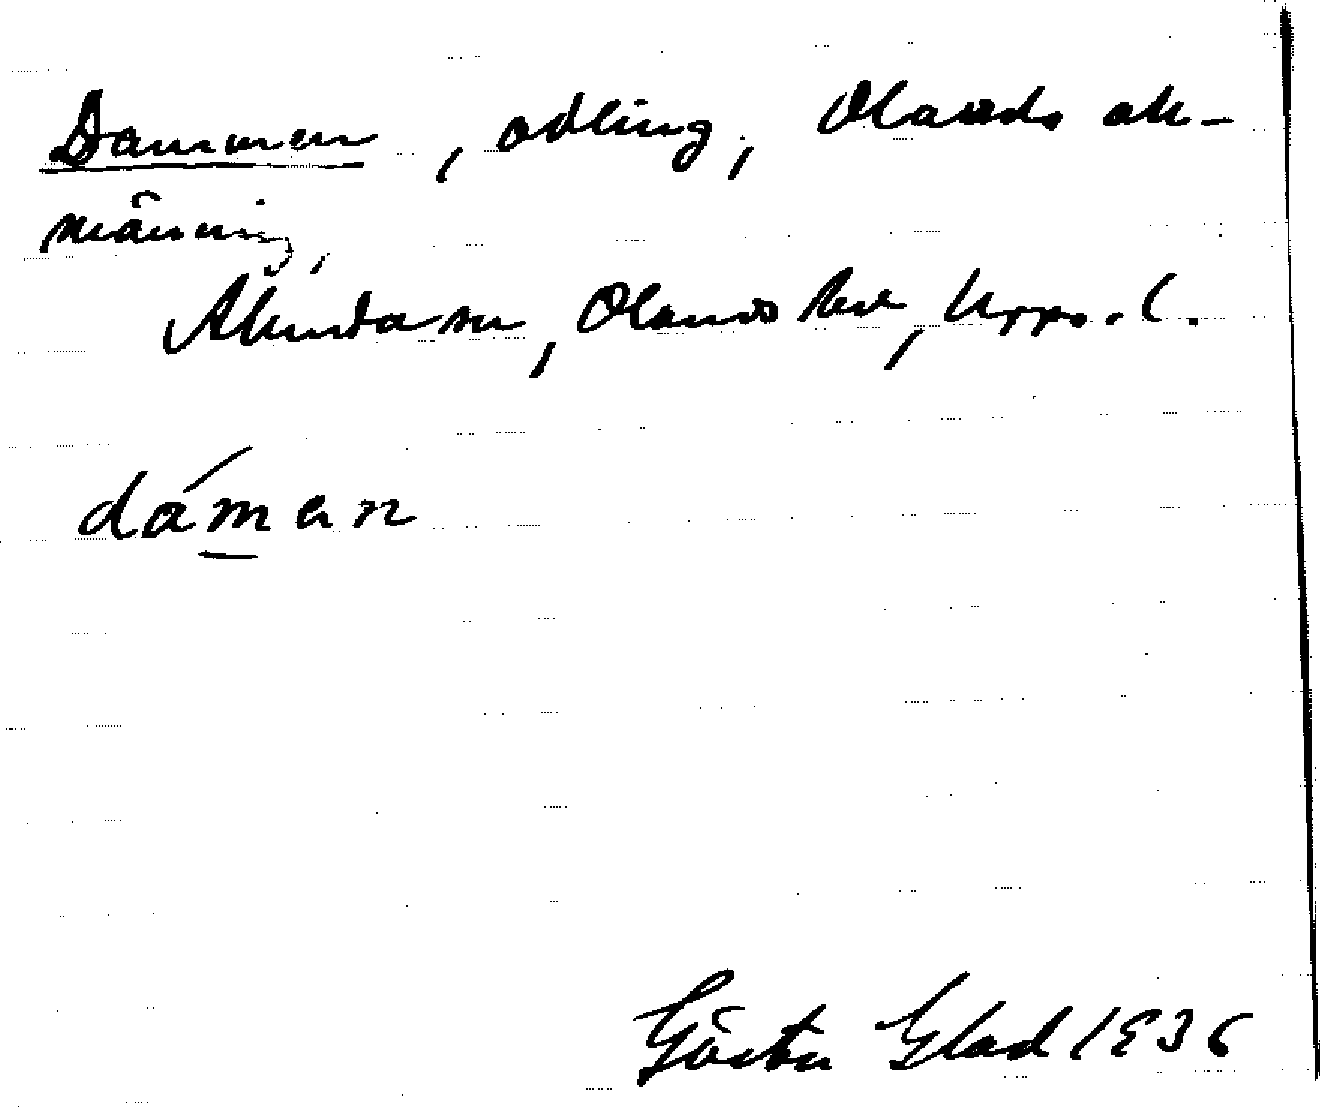 Dammen, odling, Olands all-
männing,
Alunda sn, Olands hd, Upps. l.
dámen
Gösta Glad 1936